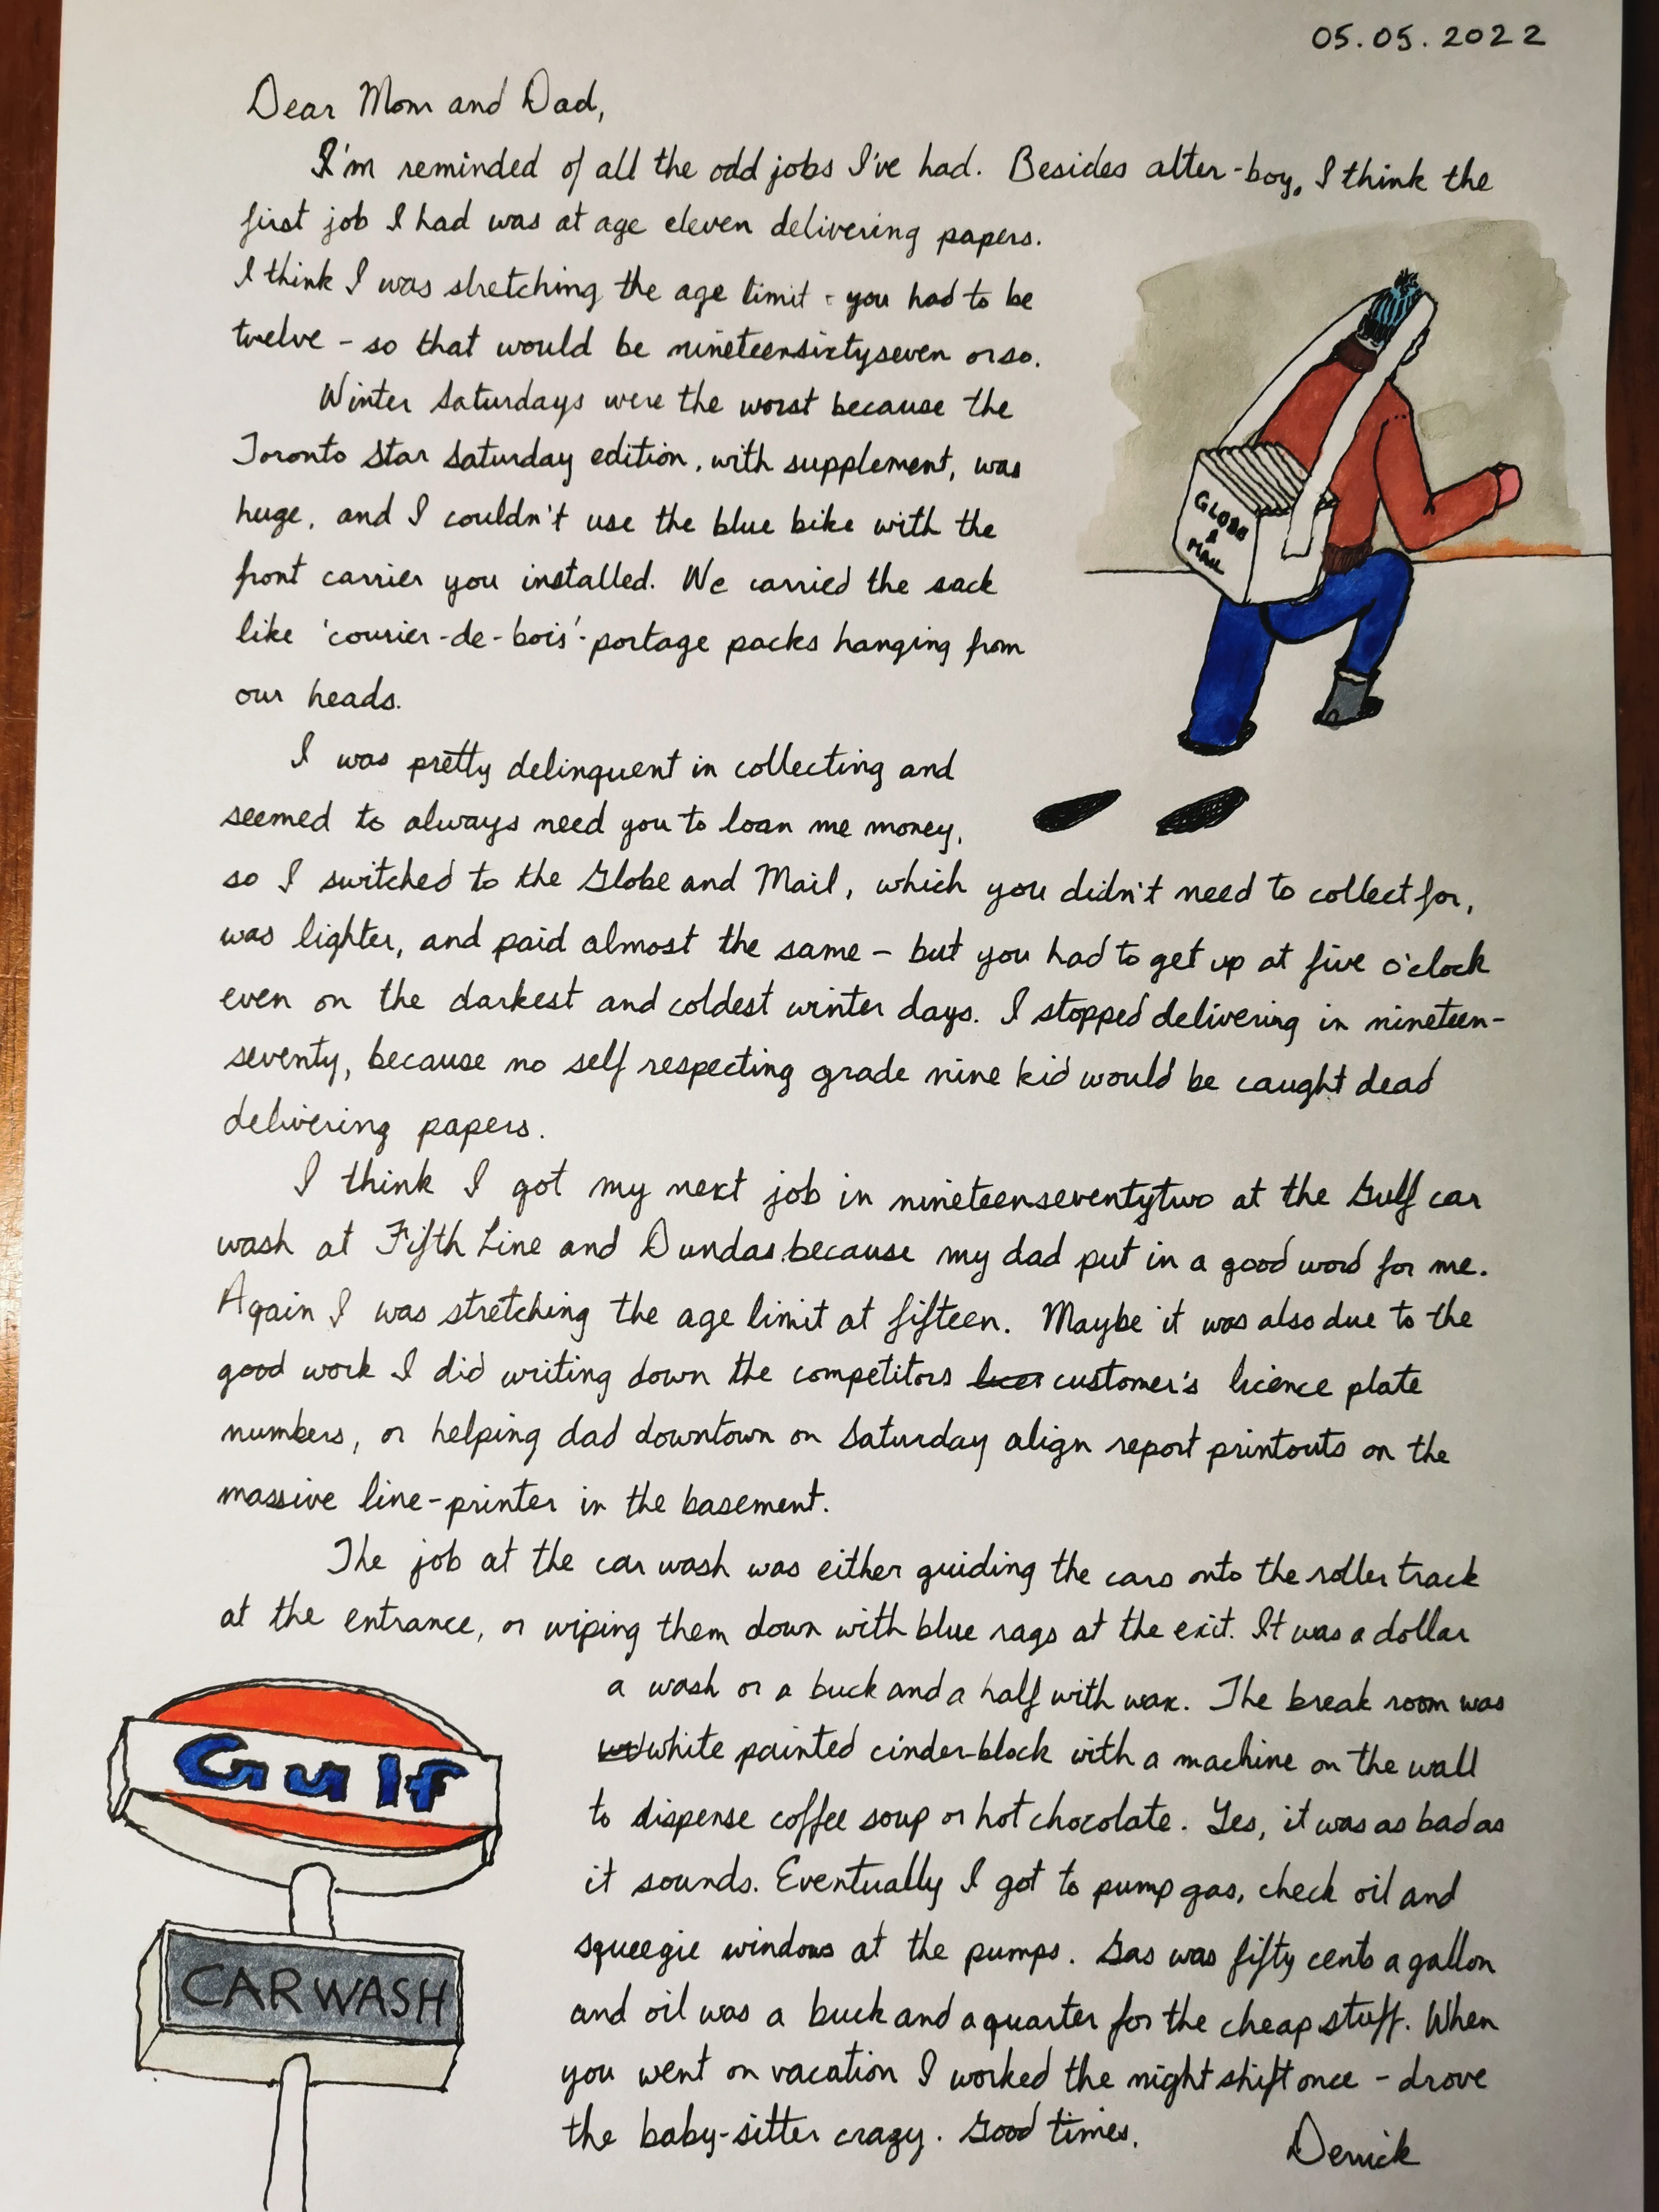 05.05.2022
Dear Mom and Dad,
I'm reminded of all the odd jobs I've had. Besides alter-boy, I think the
first job I had was at age eleven delivering papers.
I think I was stretching the age limit - you had to be
twelve - so that would be nineteensixtyseven or so.
Winter Saturdays were the worst because the
Toronto Star Saturday edition, with supplement, was
huge, and I couldn't use the blue bike with the
front carrier you installed. We carried the sack
like 'courier-de-bois'-portage packs hanging from
our heads.
GLOBE
&
MAIL
I was pretty delinquent in collecting and
seemed to always need you to loan me money,
so I switched to the Globe and Mail, which you didn't need to collect for,
was lighter, and paid almost the same - but you had to get up at five o'clock
even on the darkest and coldest winter days. I stopped delivering in nineteen-
seventy, because no self respecting grade nine kid would be caught dead
delivering papers.
I think I got my next job in nineteenseventytwo at the Gulf car
wash at Fifth Line and Dundas because my dad put in a good word for me.
Again I was stretching the age limit at fifteen. Maybe it was also due to the
good work I did writing down the competitors customer's licence plate
numbers, or helping dad downtown on Saturday align report printouts on the
massive line-printer in the basement.
The job at the car wash was either guiding the cars onto the roller track
at the entrance, or wiping them down with blue rags at the exit. It was a dollar
a wash or a buck and a half with wax. The break room was
white painted cinder-block with a machine on the wall
to dispense coffee soup or hot chocolate. Yes, it was as bad as
it sounds. Eventually I got to pump gas, check oil and
squeegie windows at the pumps. Gas was fifty cents a gallon
and oil was a buck and a quarter for the cheap stuff. When
you went on vacation I worked the night shift once - drove
the baby-sitter crazy. Good times.
Derrick
Gulf
CARWASH